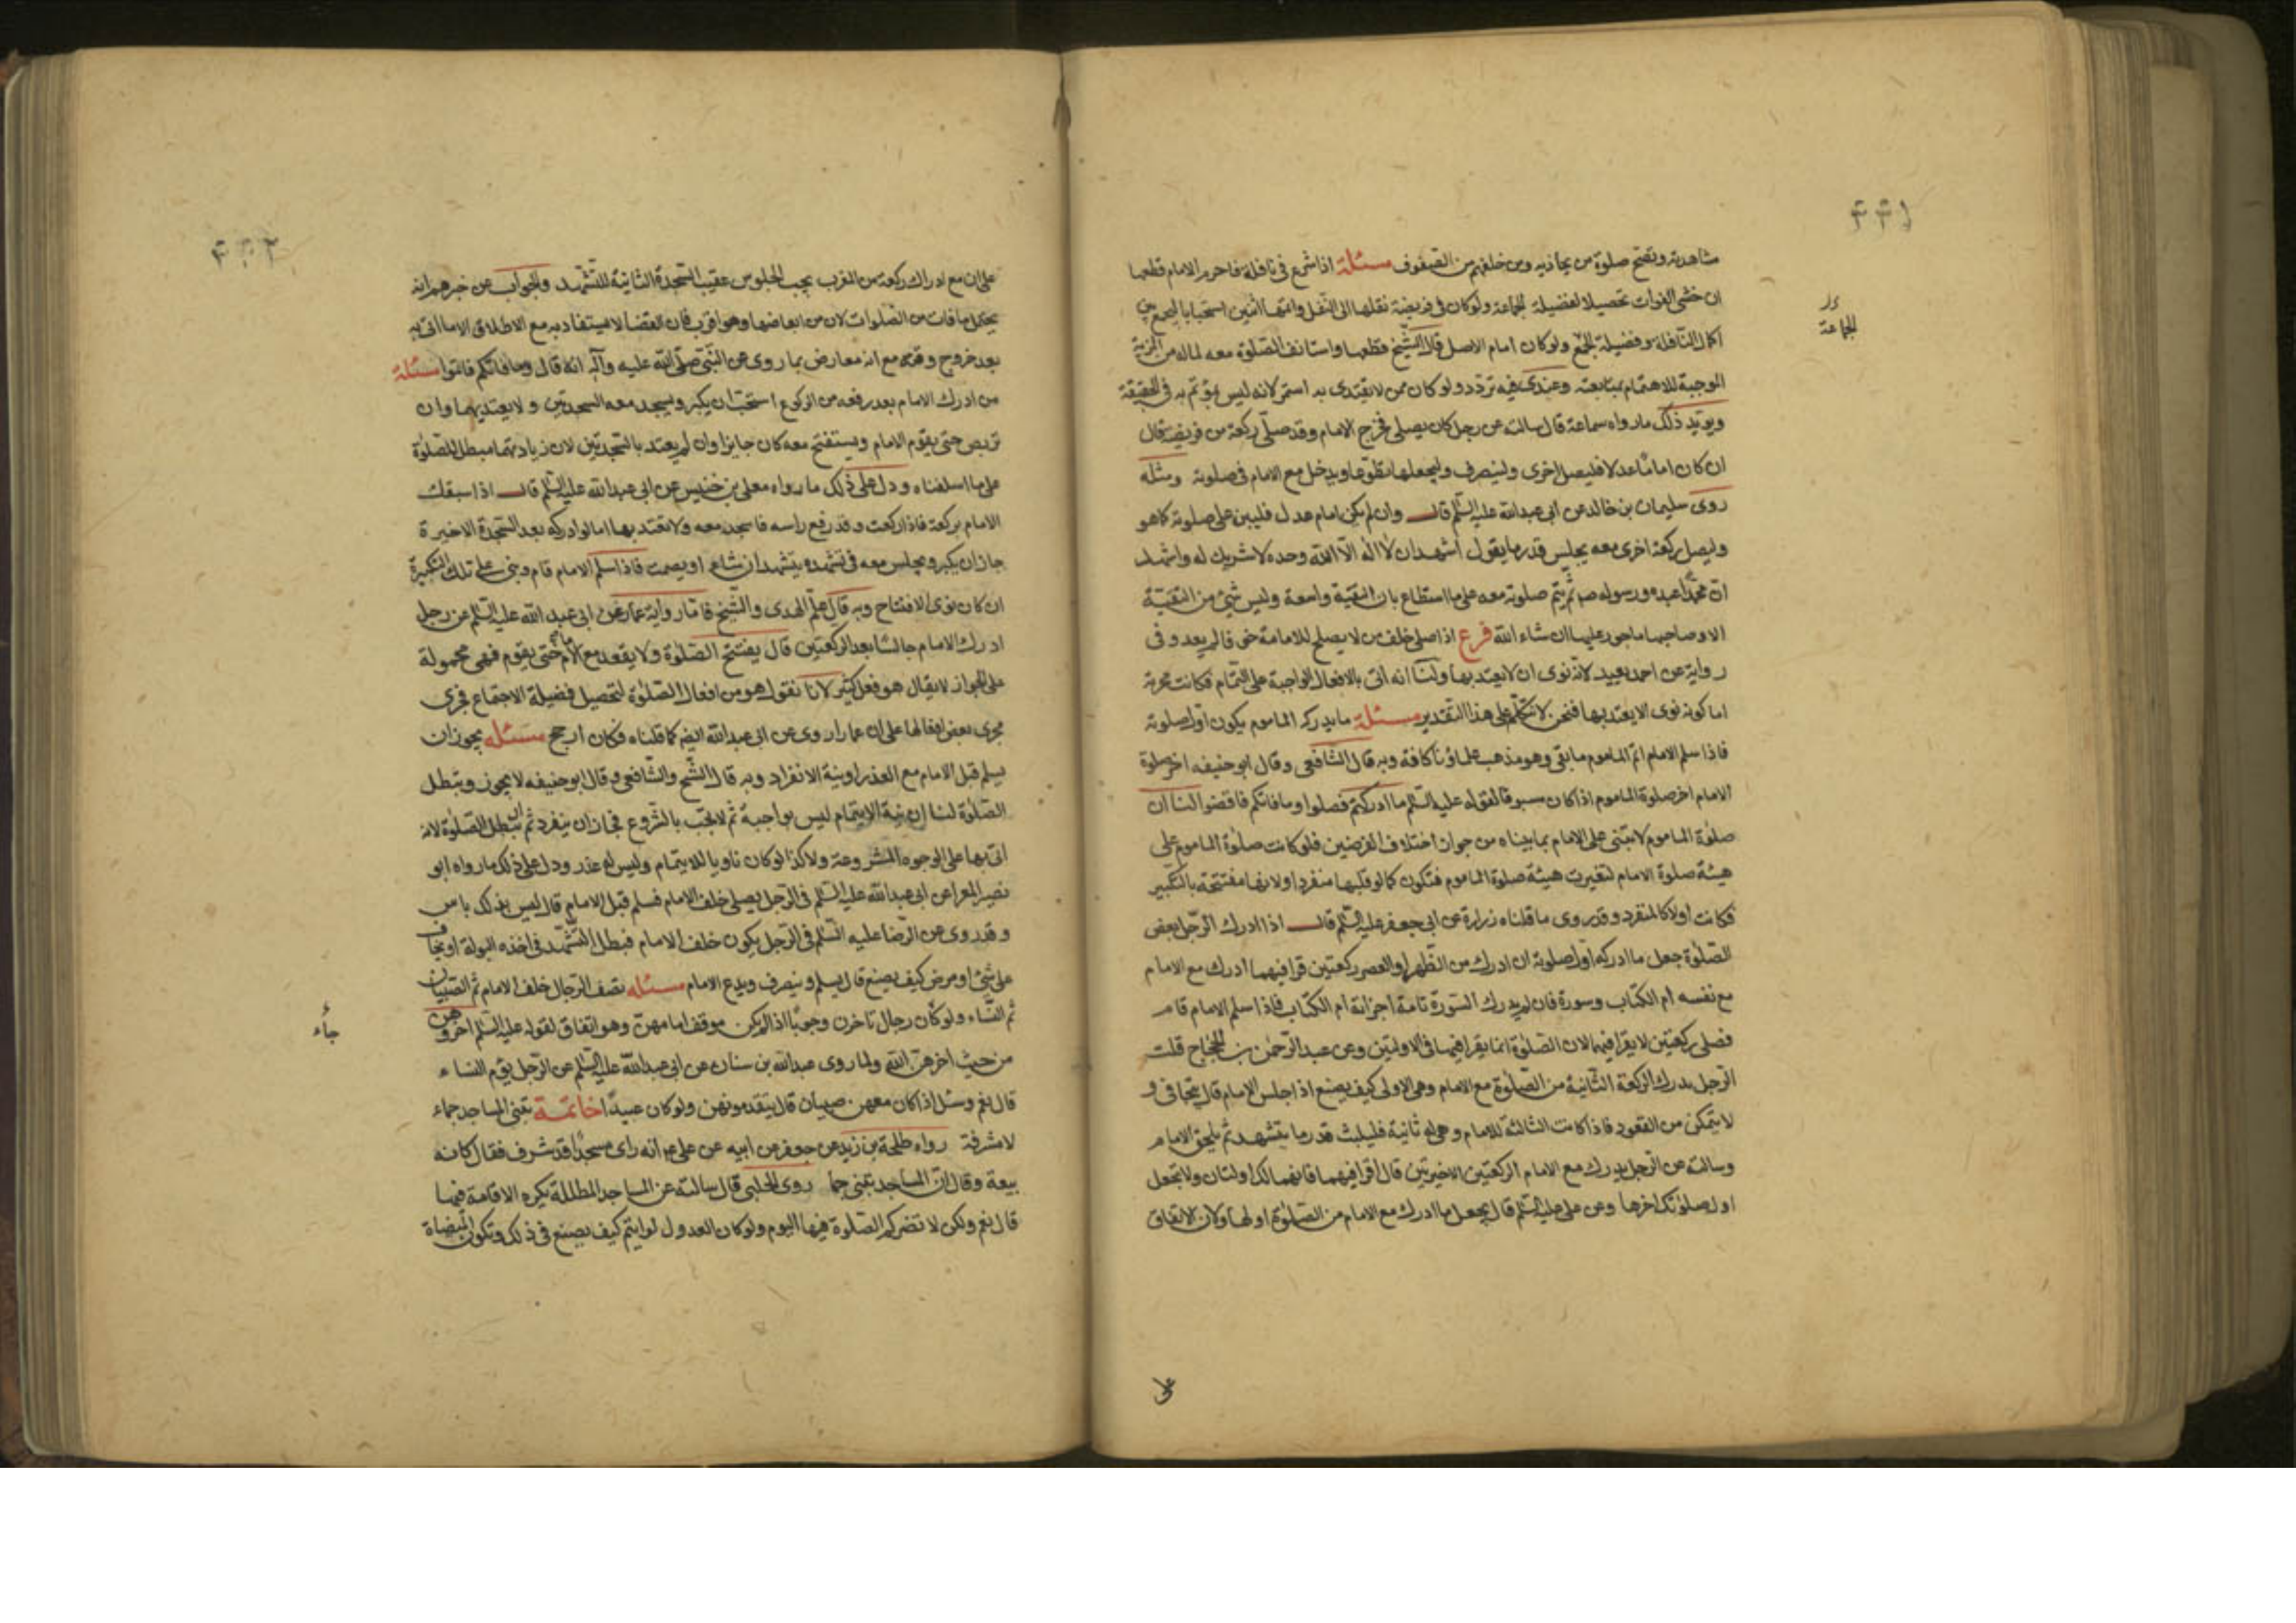 ٤٤١
مشاهدته وتصح صلوة من يحاذيه ومن خلفهم من الصفوف مسئلة اذا شرع فى نافلة فاحرم الامام قطعها
ان خشى الفوات تحصيلا لفضيلة الجماعة ولوكان فى فريضة نقلها الى النفل واتمها اثنين استحبابا ليجمع بين
الجماعة
اكمال النافلة وفضيلة الجمع ولوكان امام الاصل قال الشيخ قطعها واستانف الصلوة معه لماله من المزية
الموجبة للاهتمام بمتابعته وعندى فيه تردد ولوكان ممن لا يقتدى به استمر لانه ليس بمؤتم به فى الحقيقة
ويؤيد ذلك مارواه سماعة قال سالته عن رجل كان يصلى فخرج الامام وقد صلى ركعة من فريضة قال
ان كان اماما عدلا فليصل اخرى ولينصرف وليجعلها تطوعا ويدخل مع الامام فى صلوته ومثله
روى سليمان بن خالد عن ابى عبدالله عليه السلم قال وان لم يكن امام عدل فليبن على صلوته كما هو
وليصل ركعة اخرى معه يجلس قدر ما يقول اشهد ان لا اله الا الله وحده لا شريك له واشهد
ان محمدا عبده ورسوله ص ثم يتم صلوته معه على ما استطاع بان التقية واسعة وليس شئ من التقية
الا وصاحبها ماجور عليها ان شاء الله فرع اذا صلى خلف من لا يصلح للامامة خوفا لم يعد وفى
رواية عن احمد يعيد لانه نوى ان لا يعتد بها ولنا انه اتى بالافعال الواجبة على التمام فكانت مجزية
اما كونه نوى الا يعتد بها فنحن لا نتكلم على هذا التقدير مسئلة ما يدركه الماموم يكون اول صلوته
فاذا سلم الامام اتم الماموم ما بقى وهو مذهب علماؤنا كافة وبه قال الشافعى وقال ابو حنيفه اخر صلوة
الامام اخر صلوة الماموم اذا كان مسبوقا لقوله عليه السلم ما ادركتم فصلوا وما فاتكم فاقضوا لنا ان
صلوة الماموم لا تبتنى على الامام بما بيناه من جواز اختلاف الفرضين فلوكانت صلوة الماموم على
هيئة صلوة الامام لتغيرت هيئة صلوة الماموم فتكون كما لو قلبها منفردا ولانها مفتتحة بالتكبير
فكانت اولا كالمنفرد وقد روى ما قلناه زرارة عن ابى جعفر عليه السلم قال اذا ادرك الرجل بعض
الصلوة جعل ما ادركه اول صلوته ان ادرك من الظهر او العصر ركعتين قرا فيهما ادرك مع الامام
مع نفسه ام الكتاب وسورة فان لم يدرك السورة تامة اجزاته ام الكتاب فاذا سلم الامام قام
فصلى ركعتين لا يقرا فيهما لان الصلوة انما يقرا فيها فى الاوليين وعن عبد الرحمن بن الحجاج قلت
الرجل يدرك الركعة الثانية من الصلوة مع الامام وهى الاولى كيف يصنع اذا جلس الامام قال يتجافى و
لا يتمكن من القعود فاذا كانت الثالثة للامام وهى له ثانية فليلبث قدر ما يتشهد ثم يلحق الامام
وسالته عن الرجل يدرك مع الامام الركعتين الاخيرتين قال اقرا فيهما فانهما لك اولتان ولا تجعل
اول صلوتك اخرها وعن على عليه السلم قال يجعل ما ادرك مع الامام من الصلوة اولها ولان الاتفاق
٤٤٢
على ان مع ادراك ركعة من المغرب يجب الجلوس عقيب السجدة الثانية للتشهد والجواب عن خبرهم انه
يحتمل ما فات من الصلوات لان من ابعاضها وهو اقرب فان القضا لا يستفاد به مع الاطلاق الا ما اتى به
بعد خروج وقته مع انه معارض بما روى عن النبى صلى الله عليه وآله انه قال وما فاتكم فاتموا مسئلة
من ادرك الامام بعد رفعه من الركوع استحب ان يكبر ويسجد معه السجدتين ولا يعتد بهما وان
تربص حتى يقوم الامام ويستفتح معه كان جايزا وان لم يعتد بالسجدتين لان زيادتهما مبطل للصلوة
على ما اسلفناه ودل على ذلك ما رواه معلى بن خنيس عن ابى عبدالله عليه السلم قال اذا سبقك
الامام بركعة فاذا ركعت وقد رفع راسه فاسجد معه ولا تعتد بها اما لو ادركه بعد السجدة الاخيرة
جاز ان يكبر ويجلس معه فى تشهده يتشهد ان شاء او يصمت فاذا سلم الامام قام وبنى على تلك التكبيرة
ان كان نوى الافتتاح وبه قال علم الهدى والشيخ فاما رواية عمار عن ابى عبد الله عليه السلم عن رجل
ادرك الامام جالسا بعد الركعتين قال يفتتح الصلوة ولا يقعد مع الامام حتى يقوم فهى محمولة
على الجواز لا يقال هو فعل كثير لانا نقول هو من افعال الصلوة لتحصيل فضيلة الاجتماع فجرى
مجرى بعض افعالها على ان عمارا روى عن ابى عبدالله ايضا كما قلناه فكان ارجح مسئله يجوز ان
يسلم قبل الامام مع العذر او نية الانفراد وبه قال الشيخ والشافعى وقال ابو حنيفه لا يجوز وتبطل
الصلوة لنا ان نية الايتمام ليس بواجبة ثم لا يجب بالشروع فجاز ان ينفرد ثم لم تبطل الصلوة لانه
اتى بها على الوجوه المشروعة ولا كذا لوكان ناويا للايتمام وليس له عذر ودل على ذلك ما رواه ابو
المعرا عن ابى عبدالله عليه السلم فى الرجل يصلى خلف الامام فسلم قبل الامام قال ليس بذلك باس
وقد روى عن الرضا عليه السلم فى الرجل يكون خلف الامام فيطل التشهد فى اخذه البولة او يخاف
على شئ او مرض كيف يصنع قال يسلم وينصرف ويدع الامام مسئله تصف الرجال خلف الامام ثم الصبيان
ثم النساء ولوكان رجال تاخرن وجوبا اذا لم يكن موقف امامهن وهو اتفاق لقوله عليه السلم اخروهن
جاء
من حيث اخرهن الله ولما روى عبدالله بن سنان عن ابى عبدالله عليه السلم عن الرجل يؤم النساء
قال نعم وسئل اذا كان معهن صبيان قال يتقدمونهن ولوكان عبيدا خاتمة تبنى المساجد جماء
لا مشرفة رواه طلحة بن زيد عن جعفر عن ابيه عن على ع انه راى مسجدا قد شرف فقال كانه
بيعة وقال ان المساجد تبنى جما روى الحلبى قال سالته عن المساجد المظللة يكره الاقامة فيها
قال نعم ولكن لا تضركم الصلوة فيها اليوم ولوكان العدول لرايتم كيف يصنع فى ذلك وتكون الميضاة